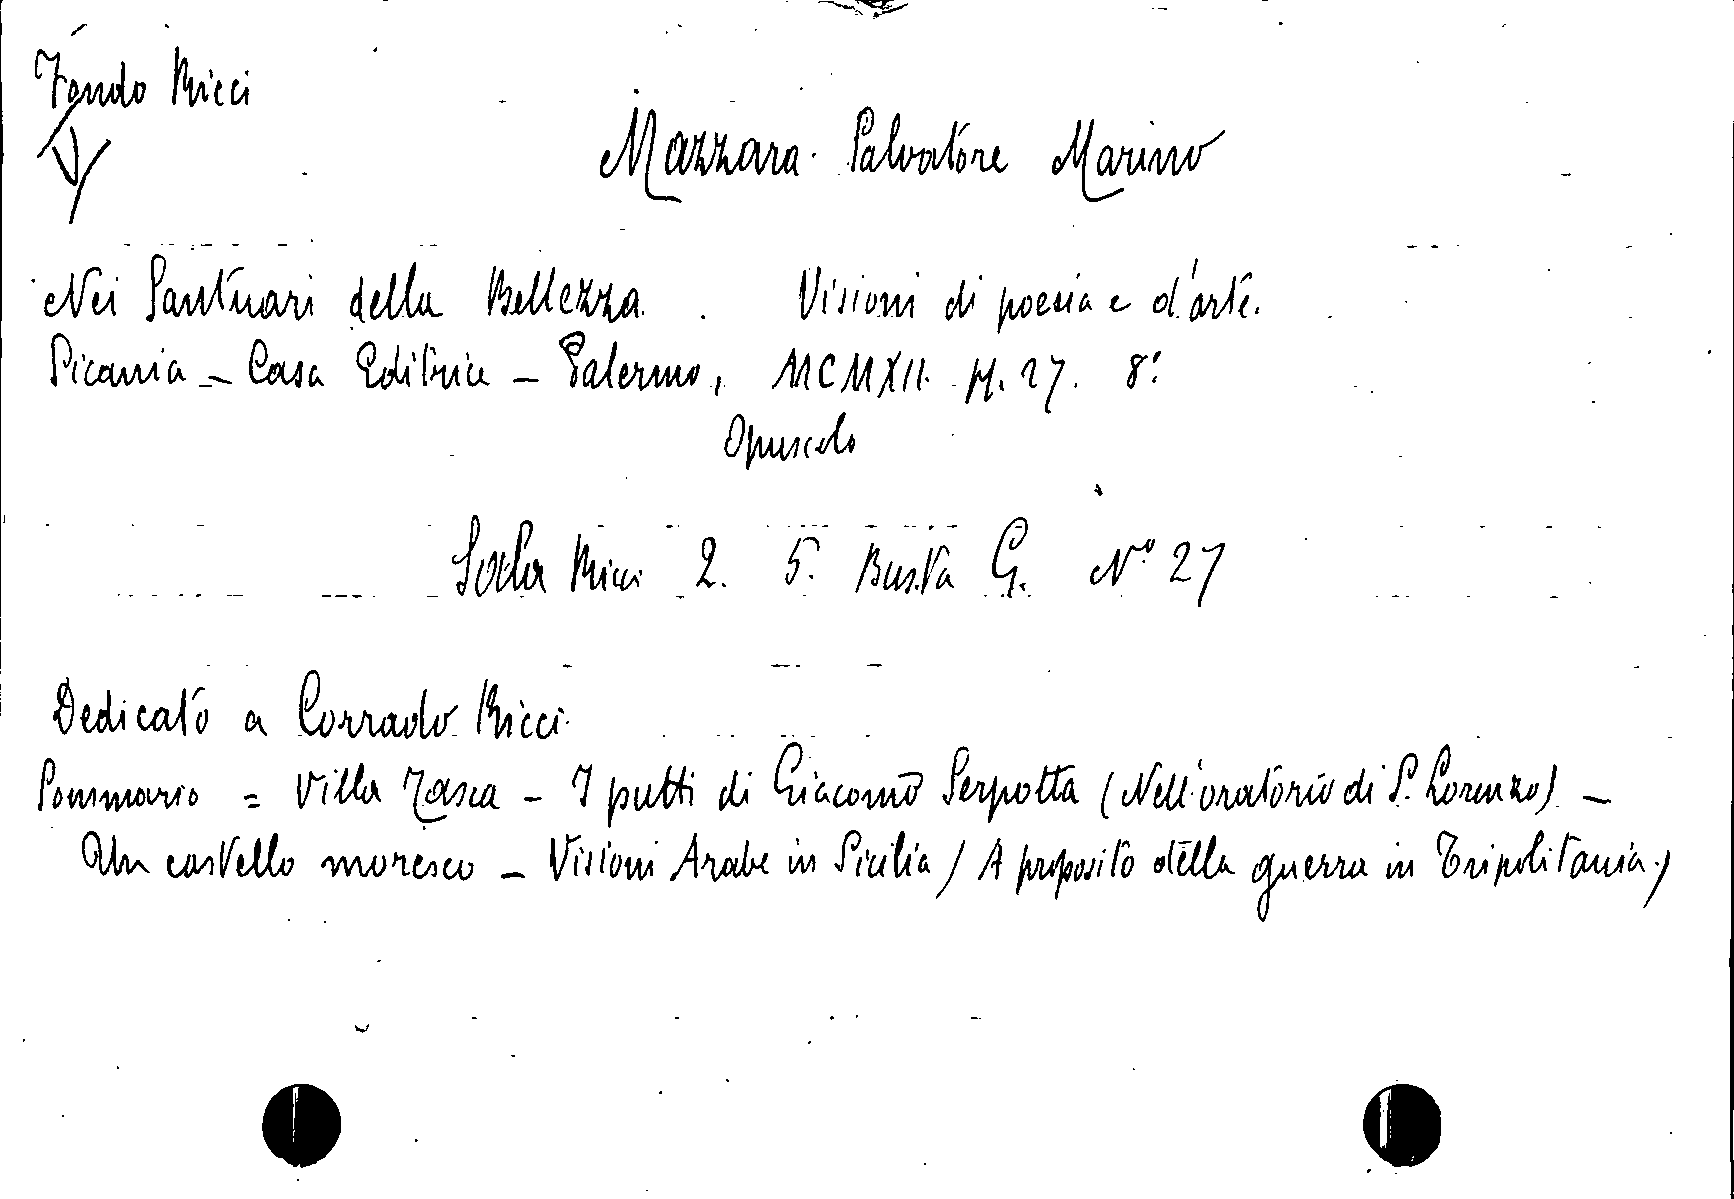 Fondo Ricci
Mazzara Salvatore Marino
Nei Santuari della Bellezza. Visioni di poesia e d'arte.
Sicania - Casa Editrice - Palermo, MCMXII. pp. 27. 8º
Opuscolo
Sala Ricci 2. 5. Busta G. Nº 27
Dedicato a Corrado Ricci.
Sommario = Villa Tasca - I putti di Giacomo Serpotta (Nell'oratorio di S. Lorenzo) -
Un castello moresco - Visioni Arabe in Sicilia ( A proposito della guerra in Tripolitania.)